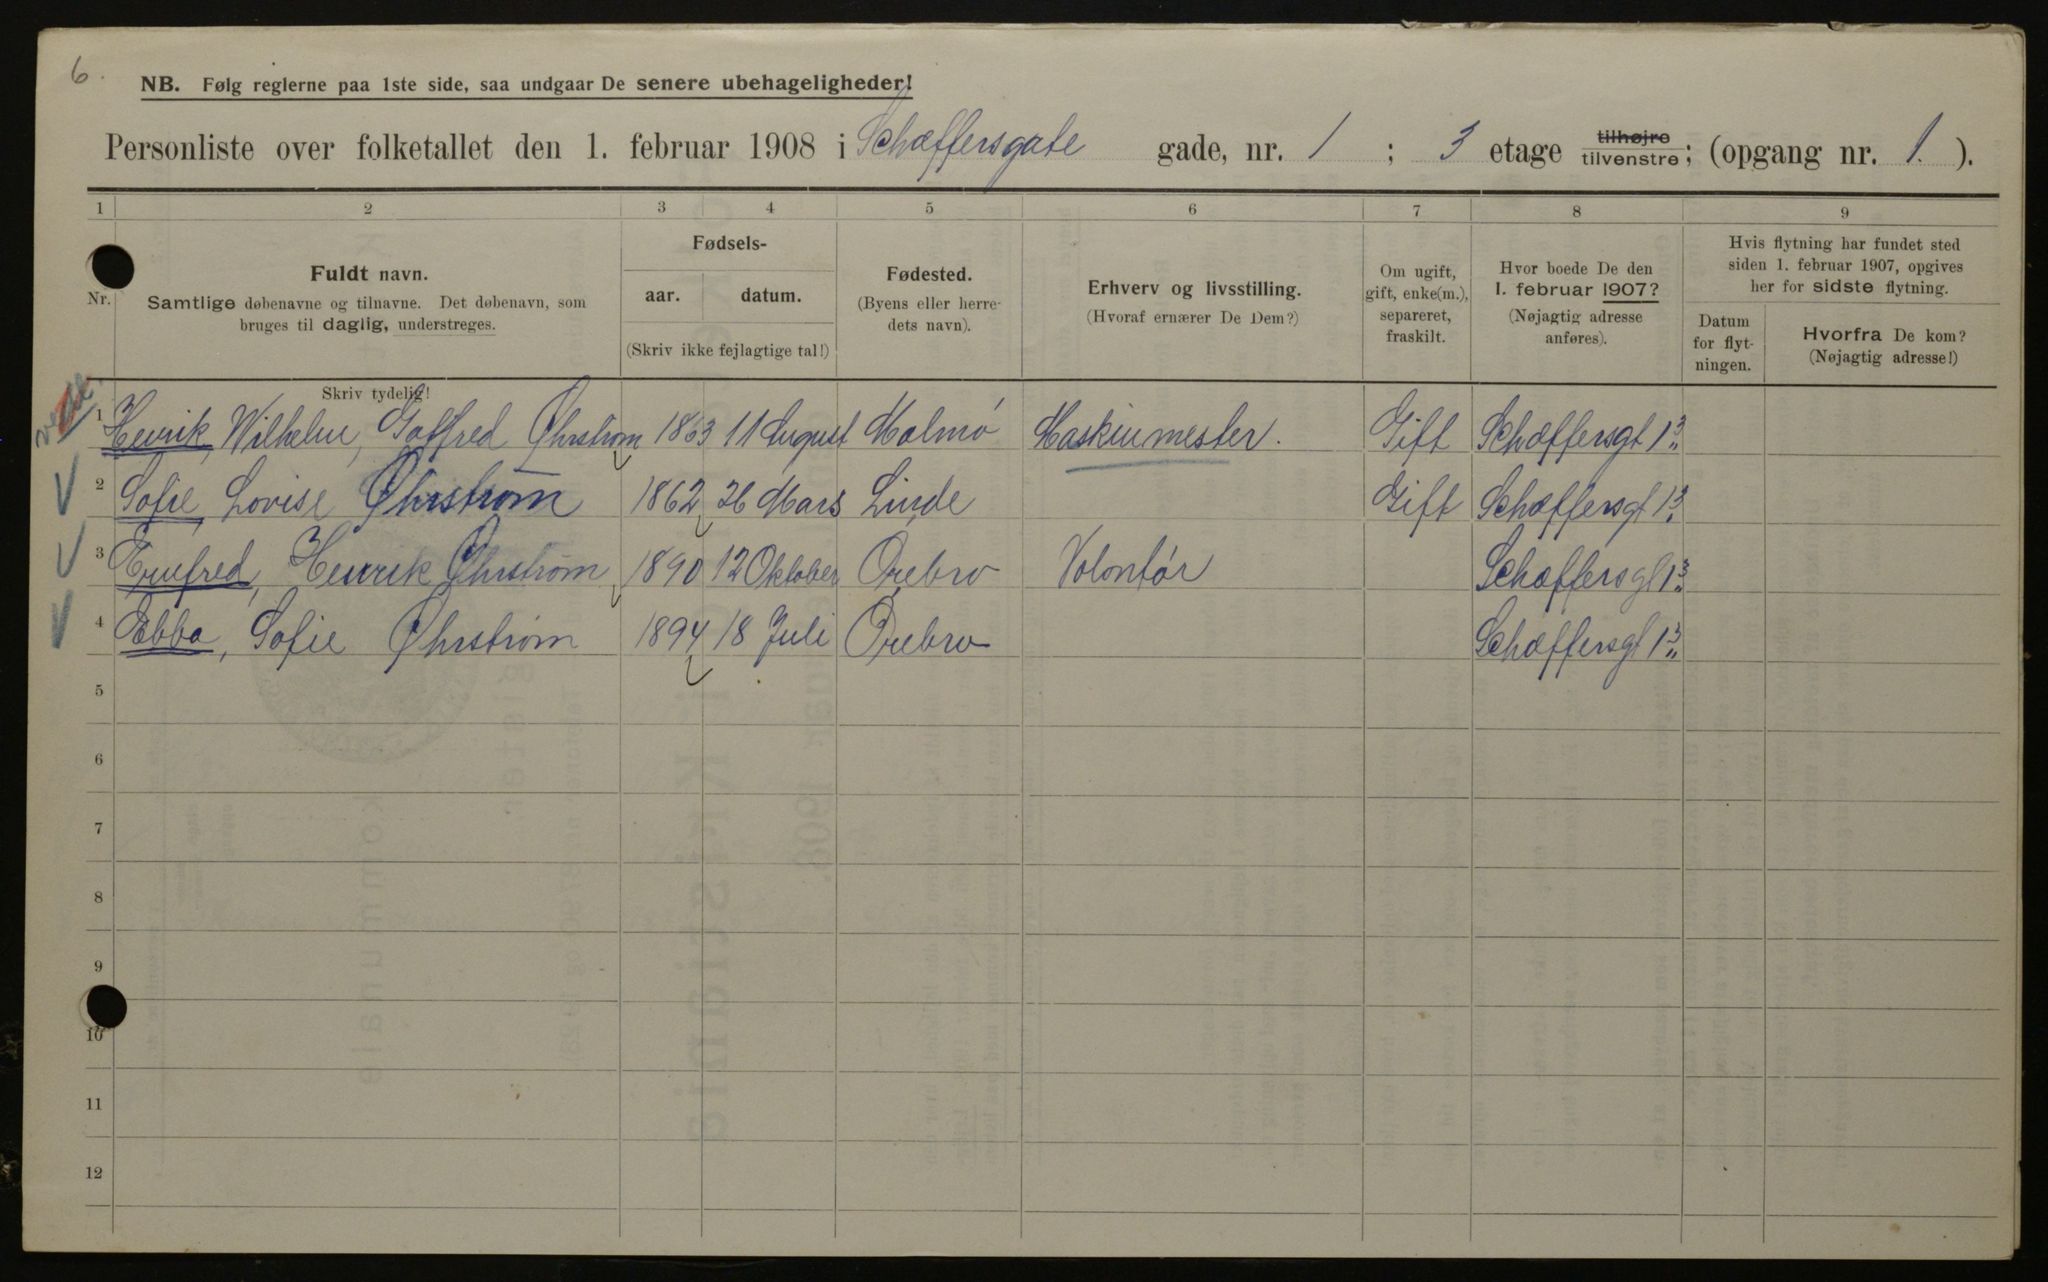 6.
NB. Følg reglerne paa 1ste side, saa undgaar De senere ubehageligheder!
Personliste over folketallet den 1. februar 1908 i Schæffersgate gade, nr. 1 ; 3 etage tilhøjre tilvenstre; (opgang nr. 1. ).
1 2 3 4 5 6 7 8 9
Nr.
Fuldt navn.
Samtlige døbenavne og tilnavne. Det døbenavn, som
bruges til daglig, understreges.
Fødsels-
aar. datum.
(Skriv ikke fejlagtige tal!)
Fødested.
(Byens eller herre-
dets navn).
Erhverv og livsstilling.
(Hvoraf ernærer De Dem?)
Om ugift,
gift, enke(m.),
separeret,
fraskilt.
Hvor boede De den
1. februar 1907?
(Nøjagtig adresse
anføres).
Hvis flytning har fundet sted
siden 1. februar 1907, opgives
her for sidste flytning.
Datum
for flyt-
ningen.
Hvorfra De kom?
(Nøjagtig adresse!)
Skriv tydelig!
1 Henrik, Wilhelm, Gottfred Øhrstrøm 1863 11 August Malmø Maskinmester. Gift Schæffersgt 1 3
2 Sofie, Lovise Øhrstrøm 1862 26 Mars Linde Gift Schæffersgt 1 3
3 Henrik Øhrstrøm 1890 12 Oktober Örebro Volontør Schæffersgt 1 3
4 Ebba, Sofie Øhrstrøm 1894 18 Juli Örebro Schæffersgt 1 3
5
6
7
8
9
10
11
12